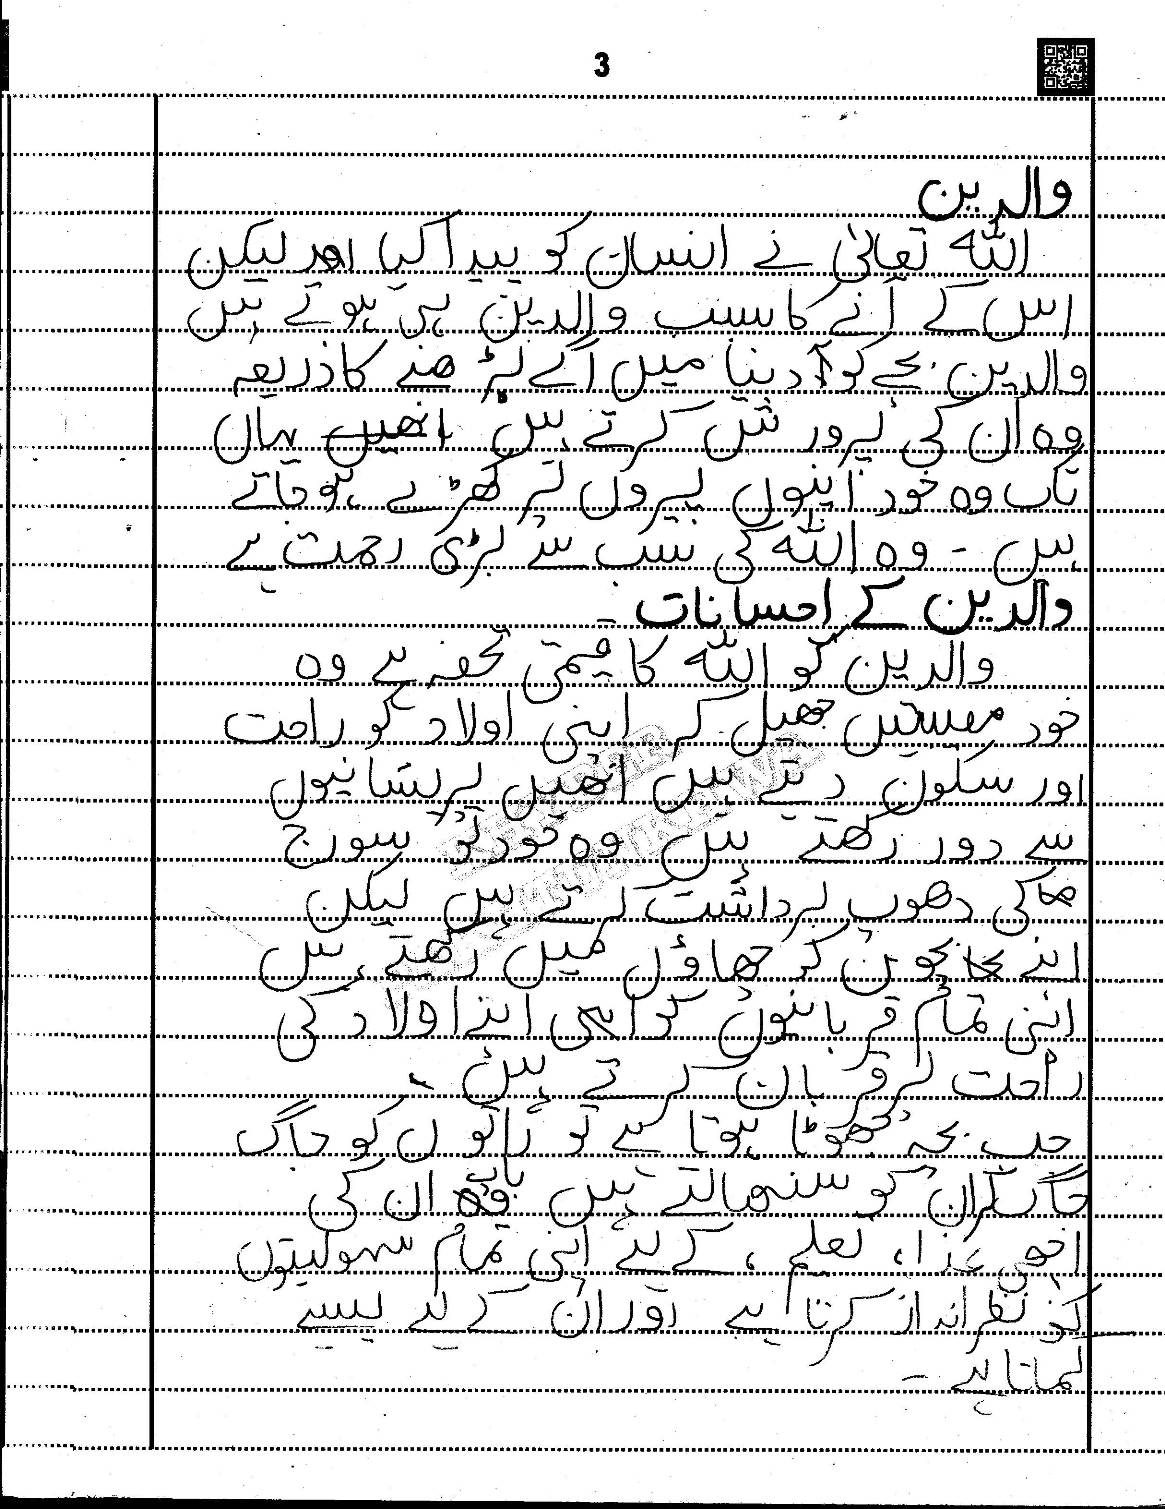 3
والدین
اللّٰہ تعالیٰ نے انسان کو پیدا کیا اور لیکن
اس کے آنے کا سبب والدین ہی ہوتے ہیں
والدین بچے کو دینا میں آگے بڑھنے کا ذریعہ
وہ ان کی پرورش کرتے ہیں انھیں یہاں
تک وہ خود اپنوں پیروں پر کھڑے ہوجاتے
ہیں - وہ اللّٰہ کی سب سے بڑی رحمت ہے
والدین کے احسانات
والدین کو اللّٰہ کا قیمتی تحفہ ہے وہ
خود مصیبتیں جھیل کر اپنی اولاد کو راحت
اور سکون دیتے ہیں انھیں پریشانیوں
سے دور رکھتے ہیں وہ خود تو سورج
کی دھوپ برداشت کرتے ہیں لیکن
اپنے بچوں کر چھاؤں میں رکھتے ہیں
اپنی تمام قربانیوں کو اپنے اولاد کی
راحت پر قربان کرتے ہیں
جب بچہ چھوٹا ہوتا ہے تو راتوں کو جاگ
جاگ کر ان کو سنبھالتے ہیں باپ ان کی
اچھی غذا، تعلیم، کے لئے اپنی تمام سہولیتوں
کو نظر انداز کرتا ہے اور ان کے لیے پیسے
کماتا ہے -